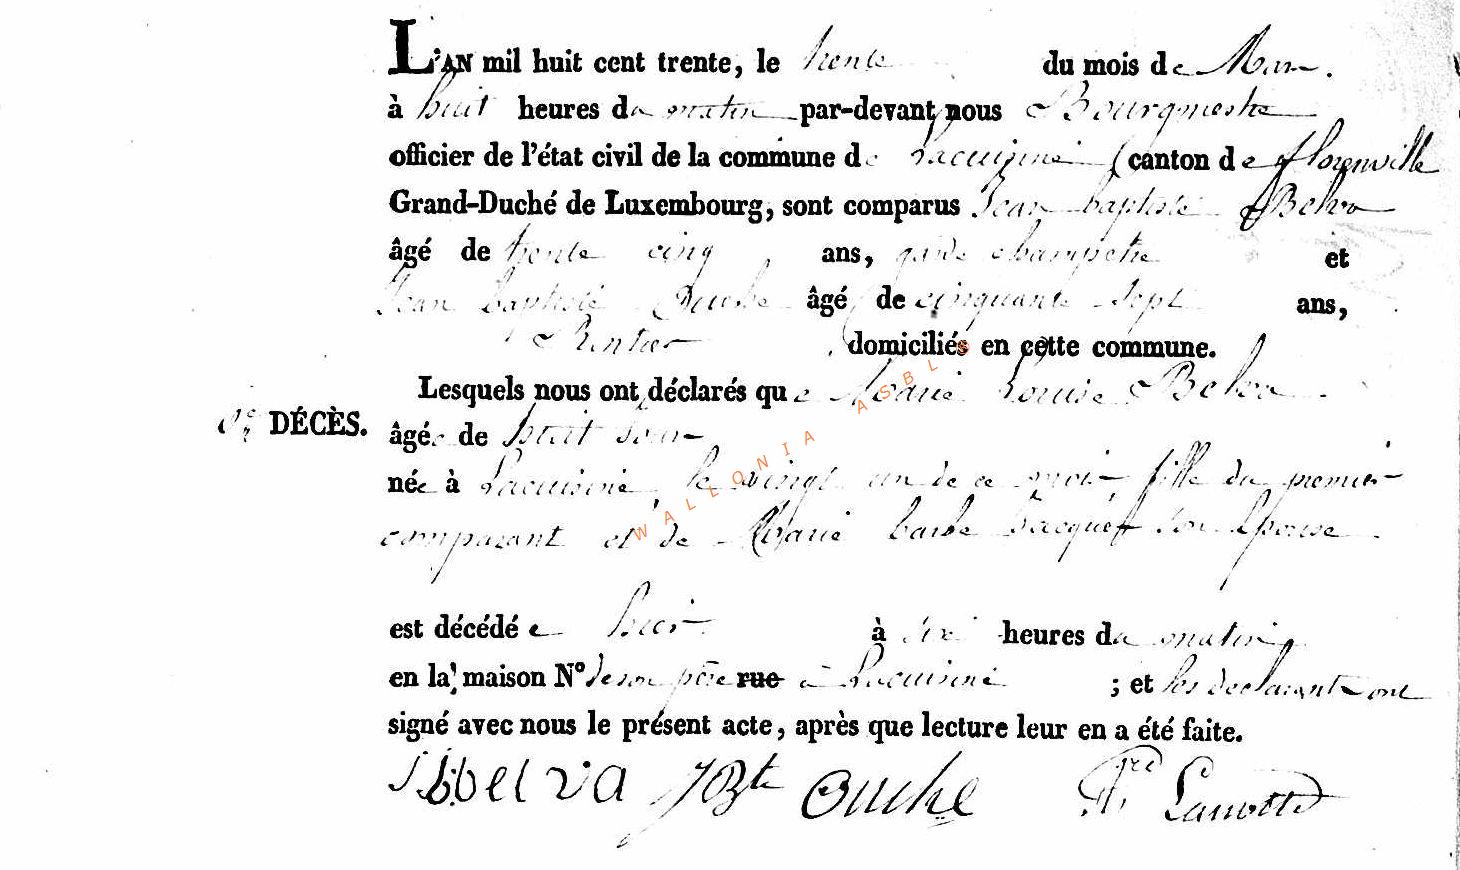 L'AN mil huit cent trente, le trente du mois de Mars.
à huit heures du matin par-devant nous Bourgmestre
officier de l'état civil de la commune de Lacuisine (canton de florenville
Grand-Duché de Luxembourg, sont comparus Jean baptiste Belva
âgé de trente cinq ans, garde champetre et
Jean baptiste Ouche âgé de cinquante Sept ans,
Rentier domiciliés en cette commune.
Lesquels nous ont déclarés que Marie Louise Belva
DÉCÈS. âgée de huit Jours
née à Lacuisine, le vingt un de ce mois fille du premier
comparant et de Marie barbe Jacquet Son Epouse
est décédée hier à heures du matin
en la maison N° de son père rue à Lacuisine ; et les declarants ont
signé avec nous le présent acte, après que lecture leur en a été faite.
JBbelva JBte Ouche Lamotte
WALLONIA ASBL